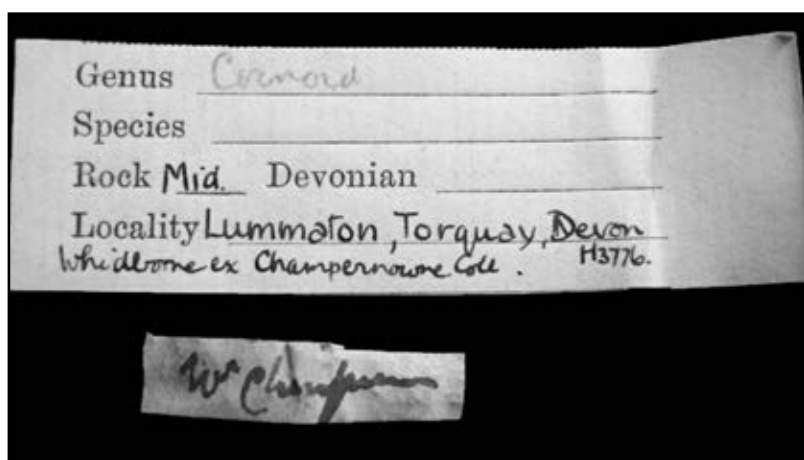 Genus
Species
Rock Mid. Devonian
Locality Lummaton, Torquay, Devon
Whidborne ex Champernowne Coll. H3776.